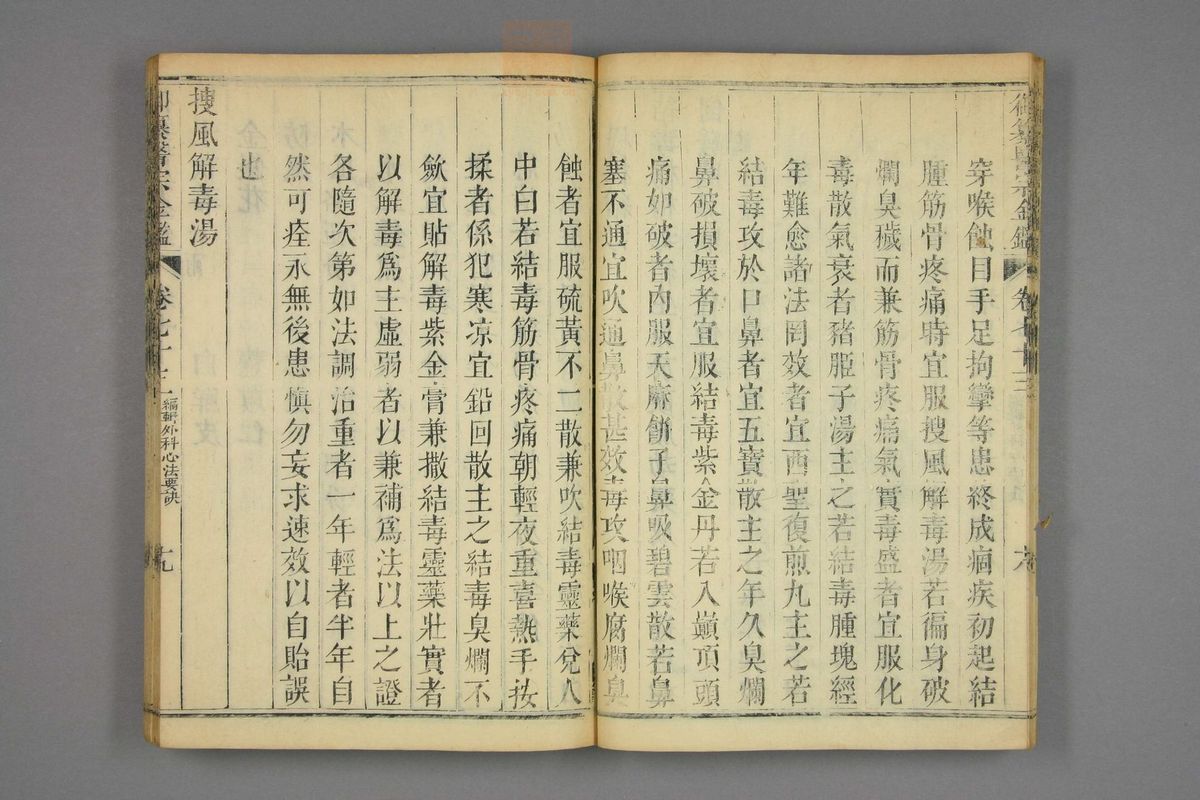 御纂醫宗金鑑 卷七十三 六
穿喉蝕目手足拘攣等患終成痼疾初起結
腫筋骨疼痛時宜服搜風解毒湯若徧身破
爛臭穢而兼筋骨疼痛氣實毒盛者宜服化
毒散氣衰者豬胵子湯主之若結毒腫塊經
年難愈諸法罔效者宜西聖復煎丸主之若
結毒攻於口鼻者宜五寶散主之年久臭爛
鼻破損壞者宜服結毒紫金丹若入巔頂頭
痛如破者內服天麻餅子鼻吸碧雲散若鼻
塞不通宜吹通鼻散甚效毒攻咽喉腐爛臭
蝕者宜服硫黃不二散兼吹結毒靈藥兌人
中白若結毒筋骨疼痛朝輕夜重喜熱手按
揉者係犯寒凉宜鉛回散主之結毒臭爛不
斂宜貼解毒紫金膏兼撒結毒靈藥壯實者
以解毒爲主虛弱者以兼補爲法以上之證
各隨次第如法調治重者一年輕者半年自
然可痊永無後患愼勿妄求速效以自貽誤
也
搜風解毒湯
御纂醫宗金鑑 卷七十三 編輯外科心法要訣 九